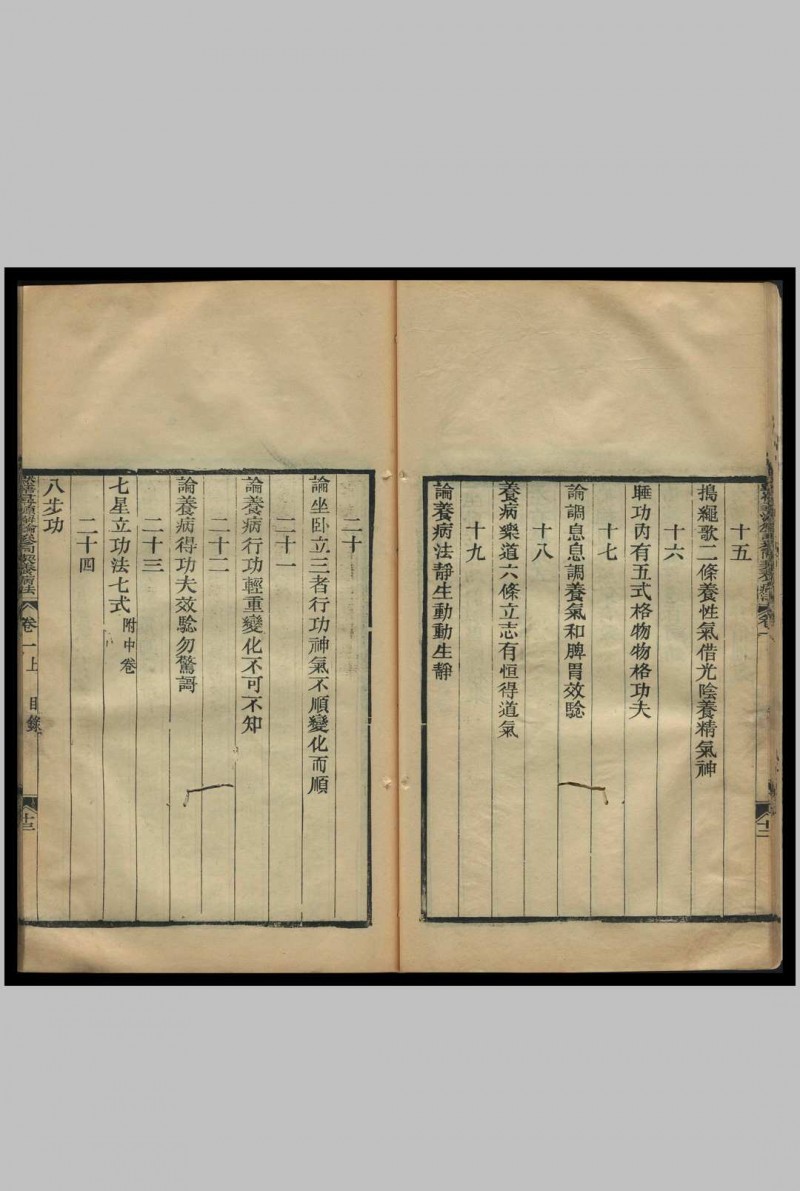 十五
搗繩歌二條養性氣借光陰養精氣神
十六
睡功丙有五式格物物格功夫
十七
論調息息調養氣和脾胃效騐
十八
養病樂道六條立志有恒得道氣
十九
論養病法靜生動動生靜
二十
論坐卧立三者行功神氣不順變化而順
二十一
論養病行功輕重變化不可不知
二十二
論養病得功夫效騐勿驚訝
二十三
七星立功法七式附中卷
二十四
八步功
卷一上 目錄 十三
十二